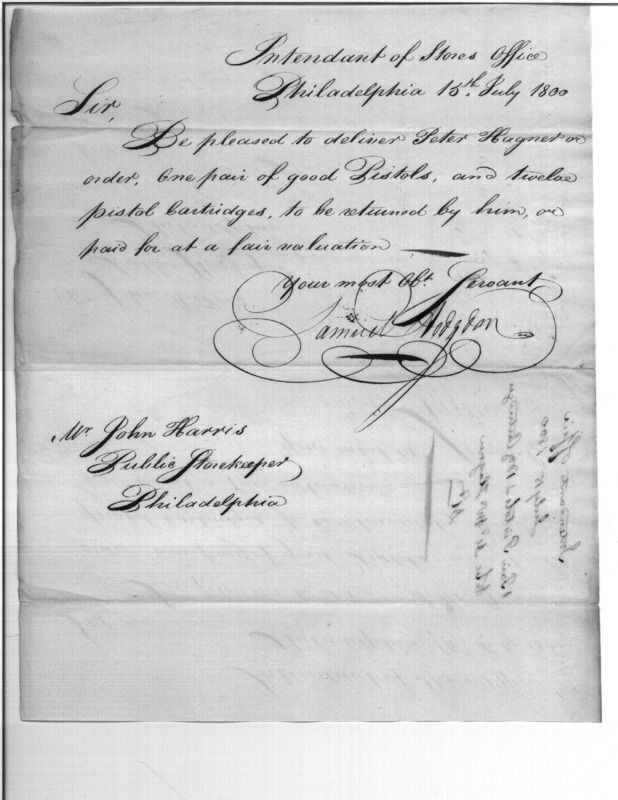 Intendant of Stores Office
Philadelphia 15th. July 1800
Sir,
Be pleased to deliver Peter Hagner or
order, One pair of good Pistols, and twelve
pistol Cartridges, to be returned by him, or
paid for at a fair valuation
Your most Obt. Servant
Samuel Hodgdon
Mr John Harris
Public Storekeeper
Philadelphia